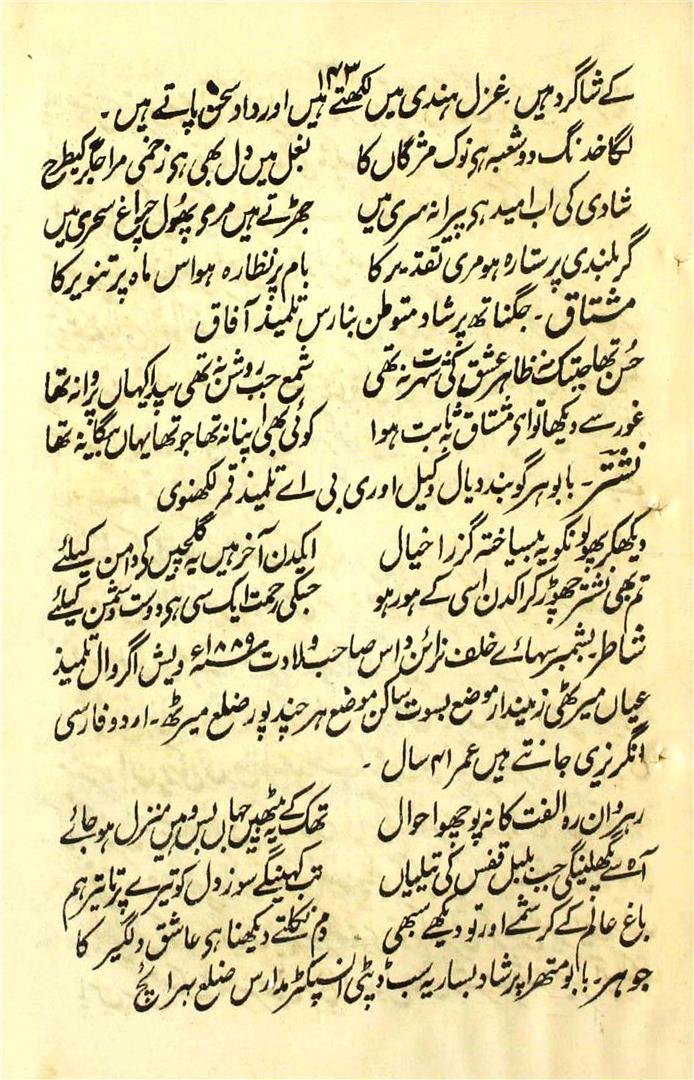 ۱۴۳
کے شاگرد ہیں غزل ہندی میں لکھتے ہیں اور داد سخن پاتے ہیں۔
لگا خدنگ دو شعبہ ہی نوک مژگاں کا بغل میں دل بھی ہی زخمی مرا جگر کیطرح
شادی کی اب امید ہی پیرانہ سری میں جھڑتے ہیں مری پھول چراغ سحری میں
گر بلندی پر ستارہ ہو مری تقدیر کا بام پر نظارہ ہو اس ماہ پر تنویر کا
مشتاق۔ جگناتھ پرشاد متوطن بنارس تلمیذ آفاق
حُسن تھا جبتک نہ ظاہر عشق کی شہرت نہ تھی شمع جب روشن نہ تھی پیدا کہاں پروانہ تھا
غور سے دیکھا تو ای مشتاق یہ ثابت ہوا کوئی بھی اپنا نہ تھا جو تھا یہاں بیگانہ تھا
نشتر۔ بابو ہر گوبند دیال وکیل اوری بی اے تلمیذ قمر لکھنوی
دیکھکر پھولونکو یہ بیساختہ گزرا خیال ایکدن آخر ہیں یہ گلچیں کی دامن کیلئے
تم بھی نشتر چھوڑ کر اکدن اسی کے ہو رہو جسکی رحمت ایک سی ہی دوست و دشمن کیلئے
شاطر بشمبر سہائے خلف نرائن داس صاحب ولادت سنہ ۱۸۸۹ء ویش اگروال تلمیذ
عیاں میرٹھی زمیندار موضع بسوت ساکن موضع ہر چند پور ضلع میرٹھ۔ اردو فارسی
انگریزی جانتے ہیں عمر ۴۱ سال۔
رہروان رہ الفت کا نہ پوچھو احوال تھک کے یہ بیٹھیں جہاں بس وہیں منزل ہو جائے
آہ سے پگھلینگی جب بلبل قفس کی تیلیاں تب کہینگے سوز دل کو تیرے پر تاثیر ہم
باغ عالم کے کرشمے اور تو دیکھے سبھی دم نکلتے دیکھنا ہی عاشق دلگیر کا
جوہر۔ بابو متھرا پرشاد بساریہ سب ڈپٹی انسپکٹر مدارس ضلع بہرائچ